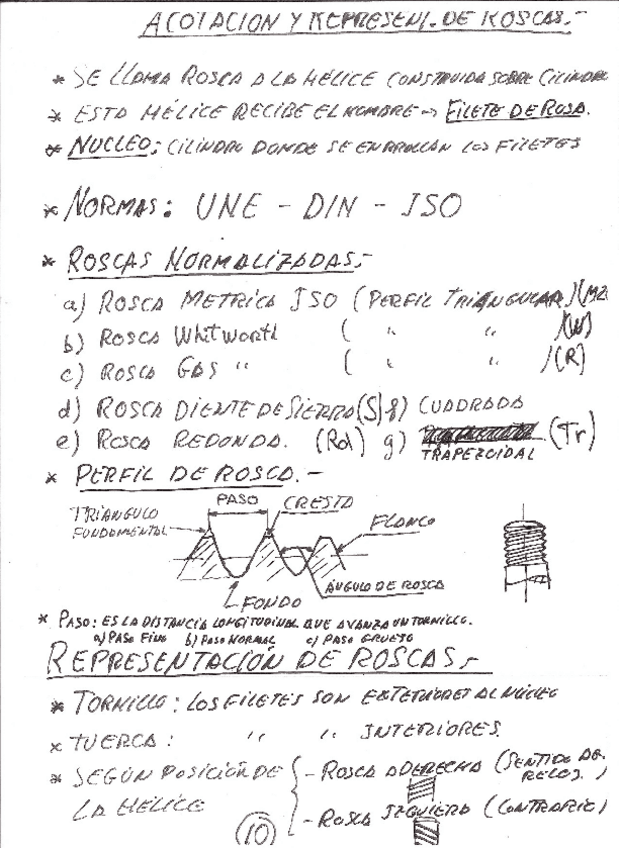 ACOTACION Y REPRESENT. DE ROSCAS.-
* SE LLAMA ROSCA A LA HÉLICE CONSTRUIDA SOBRE CILINDRO
* ESTA HÉLICE RECIBE EL NOMBRE → FILETE DE ROSA.
* NUCLEO: CILINDRO DONDE SE ENRROLLAN LOS FILETES
* NORMAS: UNE - DIN - ISO
* ROSCAS NORMALIZADAS:-
a) ROSCA METRICA ISO (PERFIL TRIANGULAR)(M)
b) ROSCA Whitworth ( " " )(W)
c) ROSCA GAS " ( " " )(R)
d) ROSCA DIENTE DE SIERRA (S) f) CUADRADA
e) ROSCA REDONDA. (Rd) g) TRAPEZOIDAL (Tr)
* PERFIL DE ROSCA.-
PASO
CRESTA
TRIÁNGULO
FUNDAMENTAL
FLANCO
ÁNGULO DE ROSCA
FONDO
* PASO: ES LA DISTANCIA LONGITUDINAL QUE AVANZA UN TORNILLO.
a) PASO FINO b) PASO NORMAL c) PASO GRUESO
REPRESENTACIÓN DE ROSCAS.-
* TORNILLO: LOS FILETES SON EXTERIORES AL NÚCLEO
* TUERCA: " " INTERIORES.
* SEGÚN POSICIÓN DE LA HÉLICE
- ROSCA A DERECHA (SENTIDO DE RELOJ.)
- ROSCA IZQUIERA (CONTRARIO)
10